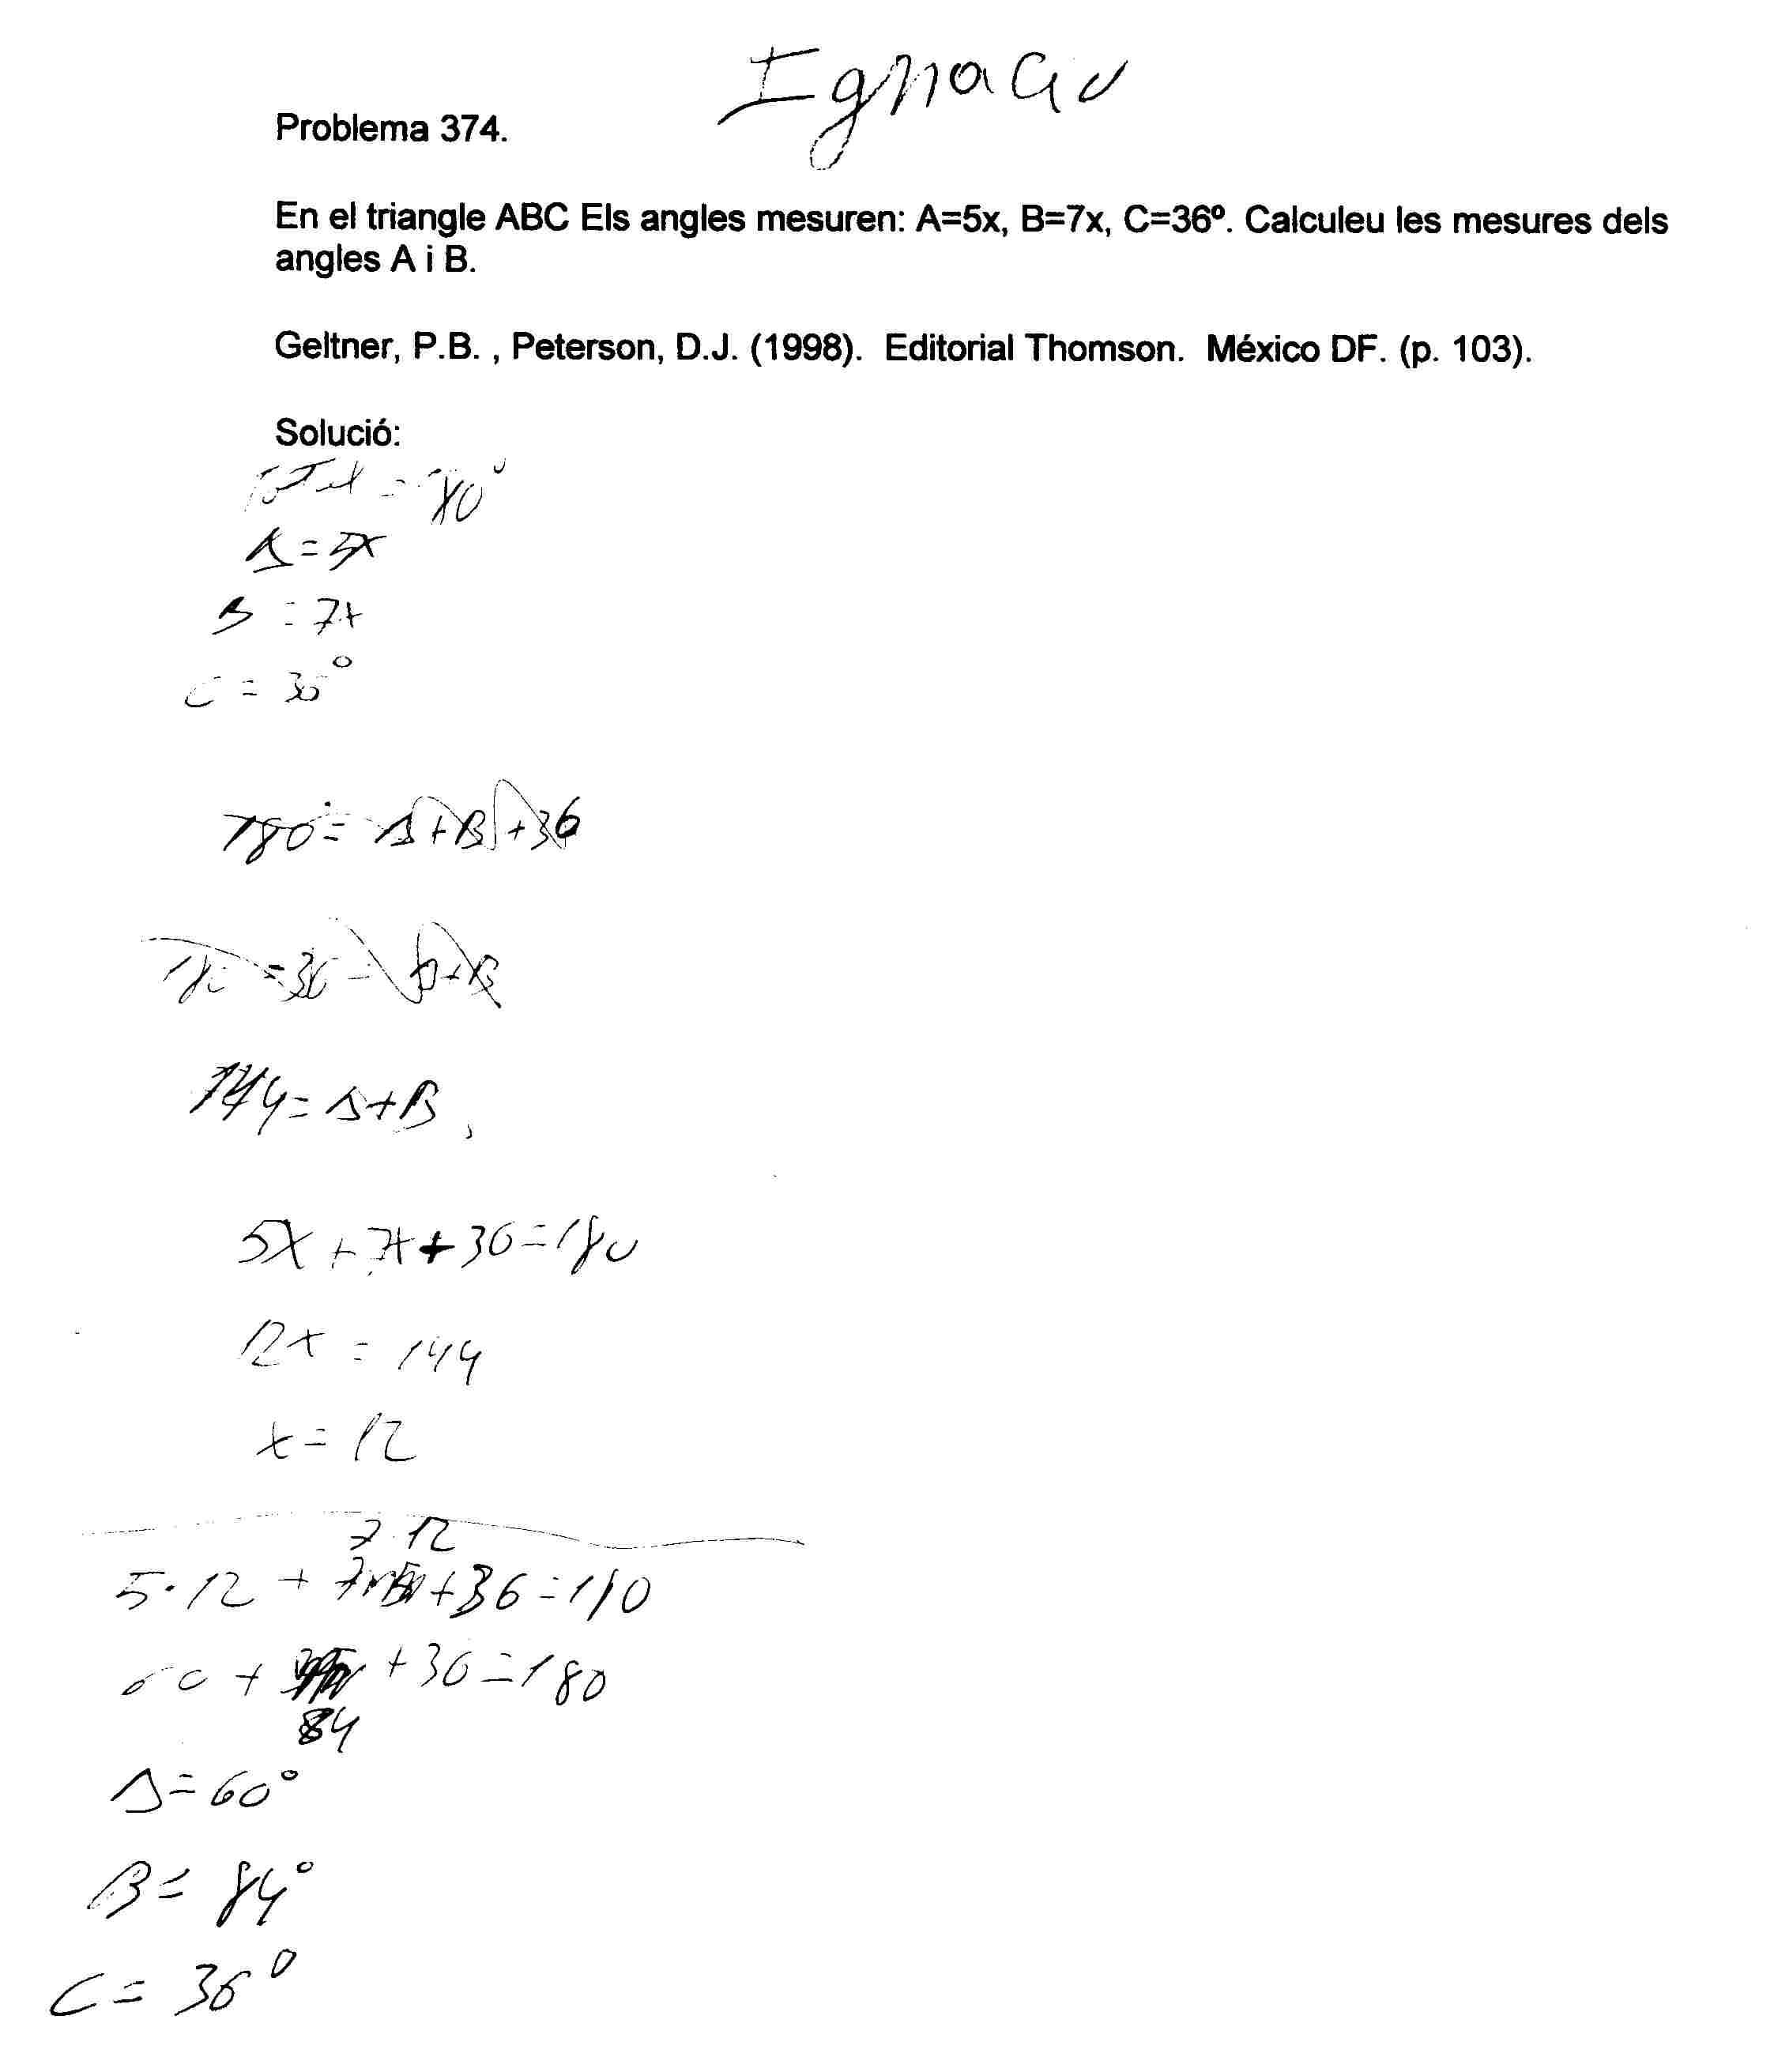 Ignacio
Problema 374.
En el triangle ABC Els angles mesuren: A=5x, B=7x, C=36º. Calculeu les mesures dels
angles A i B.
Geltner, P.B. , Peterson, D.J. (1998). Editorial Thomson. México DF. (p. 103).
Solució:
A = 5x
B = 7x
C = 36°
180 = A+B+36
144 = A+B
5x + 7x + 36 = 180
12x = 144
x = 12
7·12
5·12 + +36 = 180
60 + +36 = 180
84
A = 60°
B = 84°
C = 36°